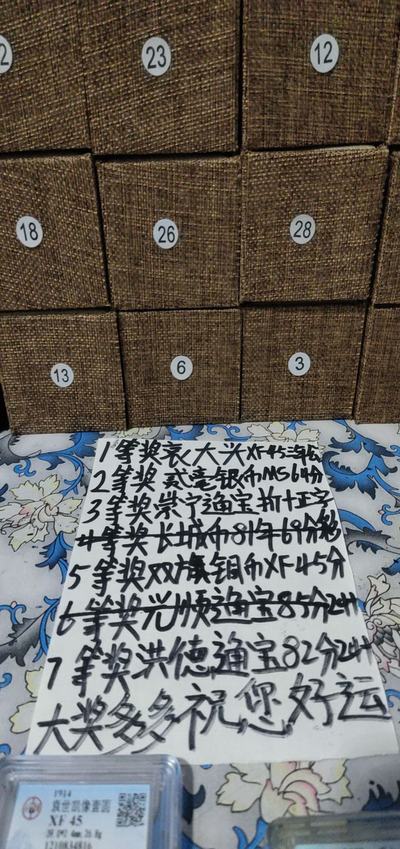 2
23
12
18
26
28
13
6
3
1等奖袁大头XF45三年
2等奖贰毫银币MS64分
3等奖崇宁通宝折十正字
4等奖长城币81年69分
5等奖双旗铜币XF45分
6等奖光顺通宝85分24H
7等奖洪德通宝82分24H
大奖多多祝您好运
1914
袁世凯像壹圆
XF 45
1210834816